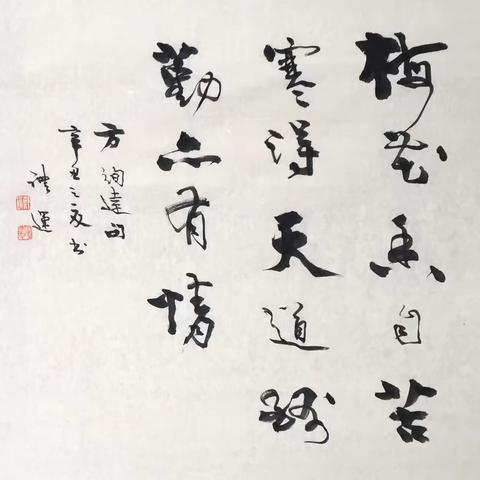 梅花香自苦
寒得天道酬
勤亦有情
方 達句
辛丑之夏书
運